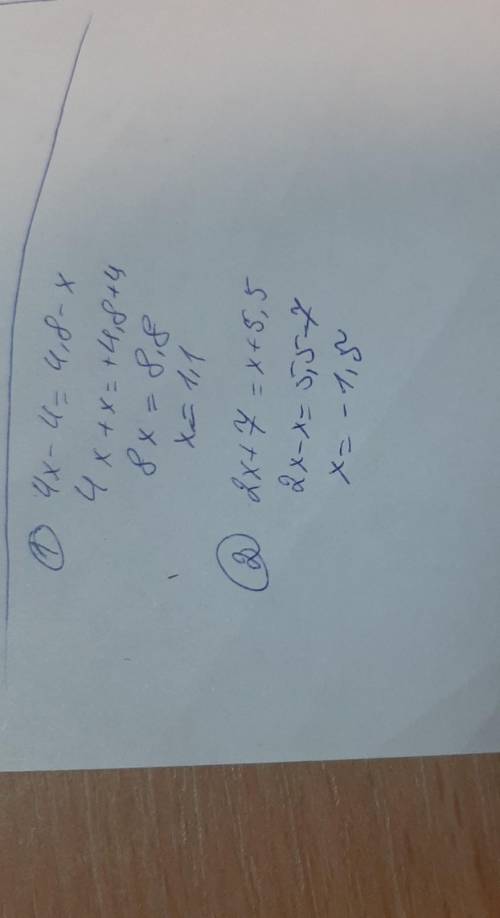 ① 4x - 4 = 4,8 - x
4x + x = +4,8 + 4
8x = 8,8
x = 1,1
② 2x + 7 = x + 5,5
2x - x = 5,5 - 7
x = -1,5